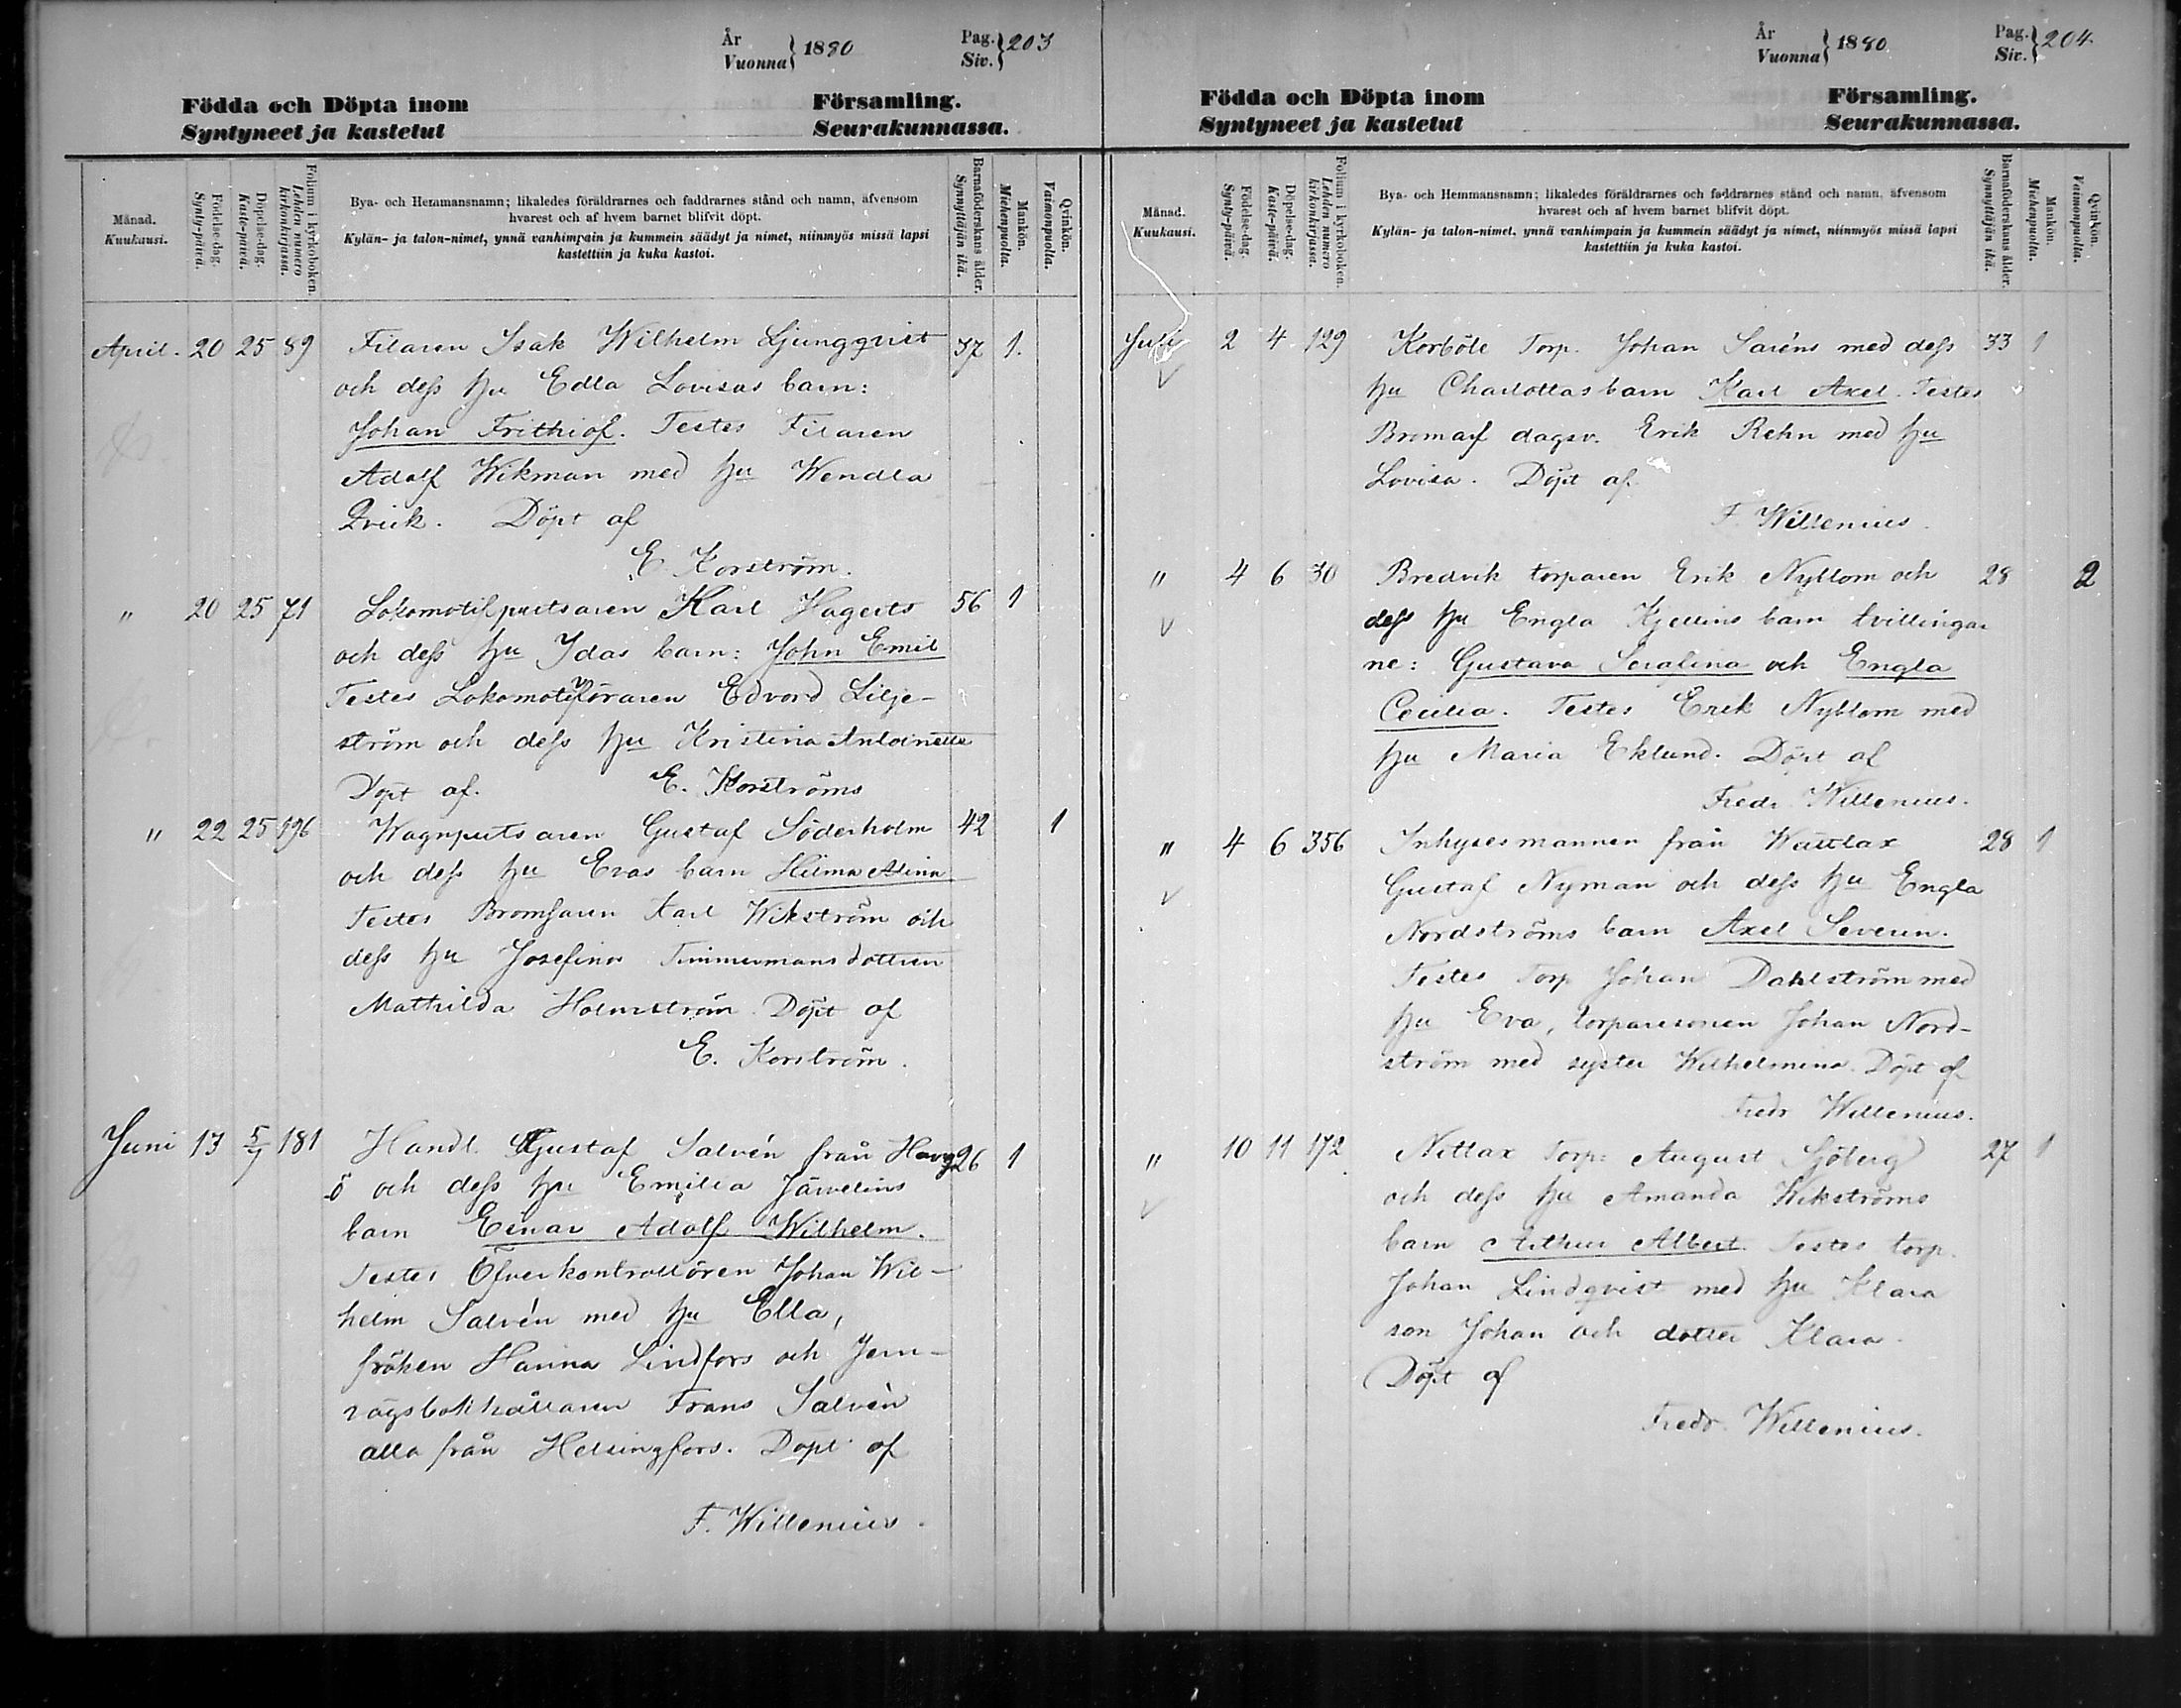 År Vuonna } 1880 Pag. Siv. } 203
Födda och Döpta inom Församling.
Syntyneet ja kastetut Seurakunnassa.
Månad. Kuukausi.
Födelse-dag. Synty-päivä.
Döpelse-dag. Kaste-päivä.
Folium i kyrkoboken. Lehden numero kirkonkirjassa.
Bya- och Hemmansnamn; likaledes föräldrarnes och faddrarnes stånd och namn, äfvensom
hvarest och af hvem barnet blifvit döpt.
Kylän- ja talon-nimet, ynnä vanhimpain ja kummein säädyt ja nimet, niinmyös missä lapsi
kastettiin ja kuka kastoi.
Barnaföderskans ålder. Synnyttäjän ikä.
Mankön. Miehenpuolta.
Qvinkön. Vaimonpuolta.
April. 20 25 89 Filaren Isak Wilhelm Ljungqvist 37 1.
och dess hu Edla Lovisas barn:
Johan Frithiof. Testes Filaren
Adolf Wikman med hu Wendla
Qvick. Döpt af
E. Korström.
" 20 25 71 Lokomotifputsaren Karl Hagerts 56 1
och dess hu Idas barn: John Emil
Testes Lokomotivföraren Edvord Lilje-
ström och dess hu Kristina Antoinette
Döpt af. E. Korströms
" 22 25 196 Wagnputsaren Gustaf Söderholm 42 1
och dess hu Evas barn Hilma Alina
Testes Bromsaren Karl Wikström och
dess hu Josefina Timmermansdottren
Mathilda Holmström. Döpt af
E. Korström.
Juni 13 5/7 181 Handl. Gustaf Salvén från Hang 26 1
ö och dess hu Emilia Järvelins
barn Einar Adolf Wilhelm.
Testes Öfverkontrollören Johan Wil-
helm Salvén med hu Ella,
fröken Hanna Lindfors och Jern-
vägsbokhållaren Frans Salvén
alla från Helsingfors. Döpt af
F. Willenius.
År Vuonna } 1880 Pag. Siv. } 204.
Födda och Döpta inom Församling.
Syntyneet ja kastetut Seurakunnassa.
Månad. Kuukausi.
Födelse-dag. Synty-päivä.
Döpelse-dag. Kaste-päivä.
Folium i kyrkoboken. Lehden numero kirkonkirjassa.
Bya- och Hemmansnamn; likaledes föräldrarnes och faddrarnes stånd och namn, äfvensom
hvarest och af hvem barnet blifvit döpt.
Kylän- ja talon-nimet, ynnä vanhimpain ja kummein säädyt ja nimet, niinmyös missä lapsi
kastettiin ja kuka kastoi.
Barnaföderskans ålder. Synnyttäjän ikä.
Mankön. Miehenpuolta.
Qvinkön. Vaimonpuolta.
Juli 2 4 129 Korböle Torp. Johan Saréns med dess 33 1
hu Charlottas barn Karl Axel. Testes
Bromarf dagsv. Erik Rehn med hu
Lovisa. Döpt af
F. Willenius.
" 4 6 30 Bredvik torparen Erik Nyblom och 28 2
dess hu Engla Kjellins barn tvillingar
ne: Gustava Serafina och Engla
Cecilia. Testes Erik Nyblom med
hu Maria Eklund. Döpt af
Fredr. Willenius.
" 4 6 356 Inhysesmannen från Wättlax 28 1
Gustaf Nyman och dess hu Engla
Nordströms barn Axel Severin.
Testes Torp Johan Dahlström med
hu Eva, torparesonen Johan Nord-
ström med syster Wilhelmina. Döpt af
Fredr Willenius.
" 10 11 172 Nittlax Torp: August Sjöberg 27 1
och dess hu Amanda Wikströms
barn Arthur Albert. Testes torp.
Johan Lindqvist med hu Klara
son Johan och dotter Klara.
Döpt af
Fredr. Willenius.